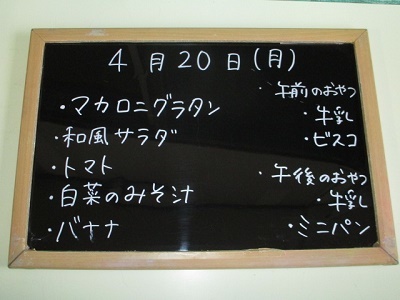 4月20日(月)
・マカロニグラタン
・和風サラダ
・トマト
・白菜のみそ汁
・バナナ
・午前のおやつ
・牛乳
・ビスコ
・午後のおやつ
・牛乳
・ミニパン